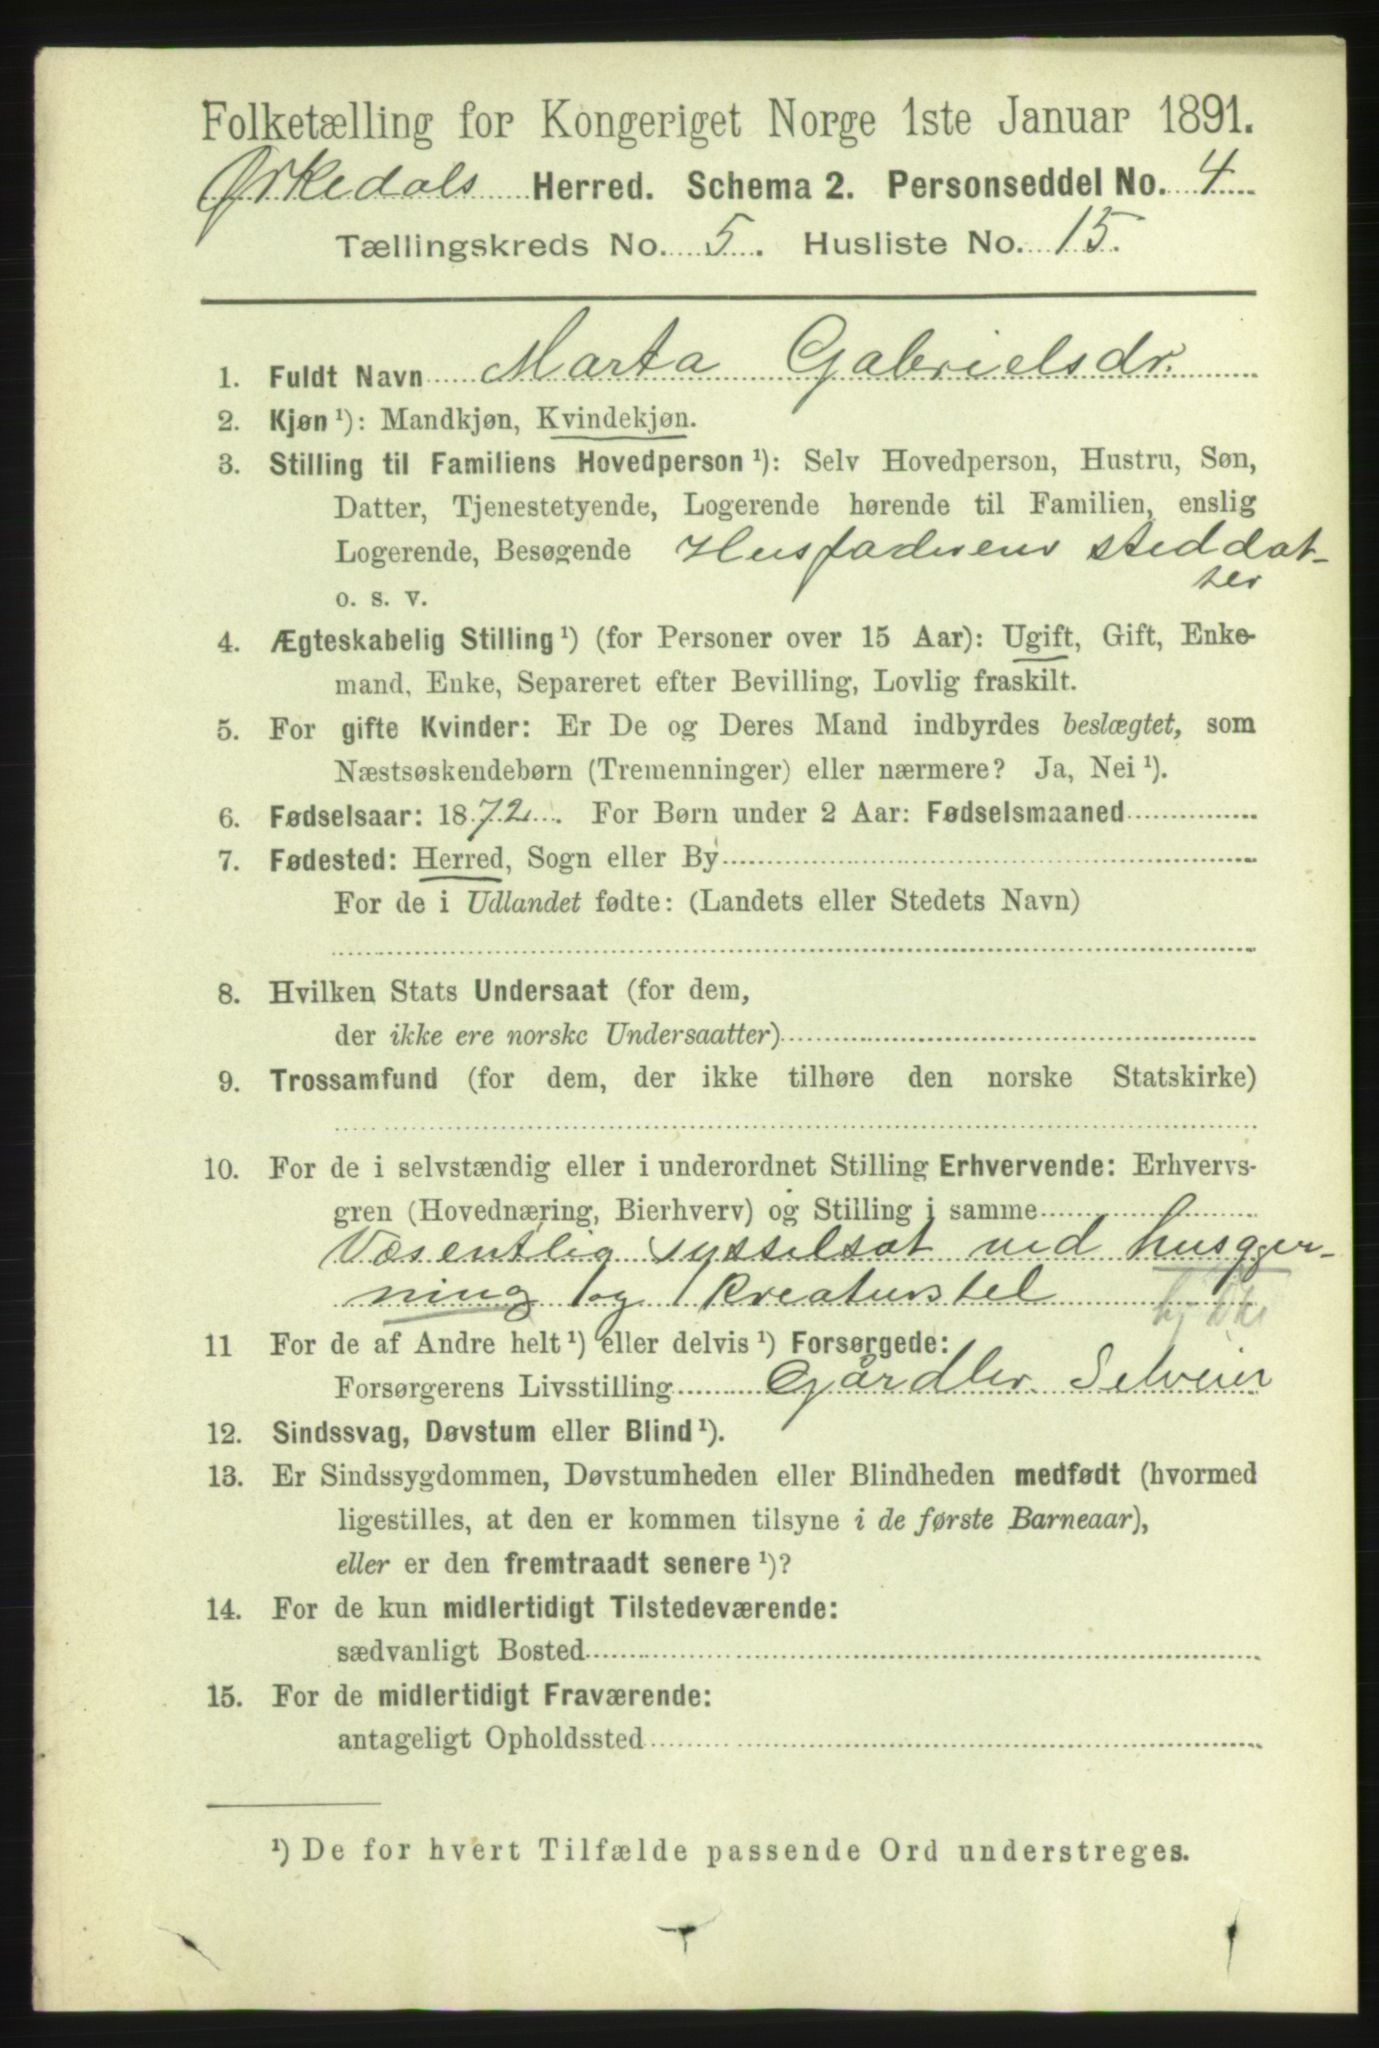 Folketælling for Kongeriget Norge 1ste Januar 1891.
Ørkedals Herred. Schema 2. Personseddel No. 4
Tællingskreds No. 5. Husliste No. 15.
1. Fuldt Navn Marta Gabrielsdr.
2. Kjøn ¹): Mandkjøn, Kvindekjøn.
3. Stilling til Familiens Hovedperson ¹): Selv Hovedperson, Hustru, Søn,
Datter, Tjenestetyende, Logerende hørende til Familien, enslig
Logerende, Besøgende Husfaderens steddat-
o. s. v. ter
4. Ægteskabelig Stilling ¹) (for Personer over 15 Aar): Ugift, Gift, Enke-
mand, Enke, Separeret efter Bevilling, Lovlig fraskilt.
5. For gifte Kvinder: Er De og Deres Mand indbyrdes beslægtet, som
Næstsøskendebørn (Tremenninger) eller nærmere? Ja, Nei ¹).
6. Fødselsaar: 1872. For Børn under 2 Aar: Fødselsmaaned
7. Fødested: Herred, Sogn eller By
For de i Udlandet fødte: (Landets eller Stedets Navn)
8. Hvilken Stats Undersaat (for dem,
der ikke ere norske Undersaatter)
9. Trossamfund (for dem, der ikke tilhøre den norske Statskirke)
10. For de i selvstændig eller i underordnet Stilling Erhvervende: Erhvervs-
gren (Hovednæring, Bierhverv) og Stilling i samme
Væsentlig sysselsat ved husgjer-
ning og kreaturstel
11 For de af Andre helt ¹) eller delvis ¹) Forsørgede:
Forsørgerens Livsstilling Gårdbr. Selveier
12. Sindssvag, Døvstum eller Blind ¹).
13. Er Sindssygdommen, Døvstumheden eller Blindheden medfødt (hvormed
ligestilles, at den er kommen tilsyne i de første Barneaar),
eller er den fremtraadt senere ¹)?
14. For de kun midlertidigt Tilstedeværende:
sædvanligt Bosted
15. For de midlertidigt Fraværende:
antageligt Opholdssted
¹) De for hvert Tilfælde passende Ord understreges.